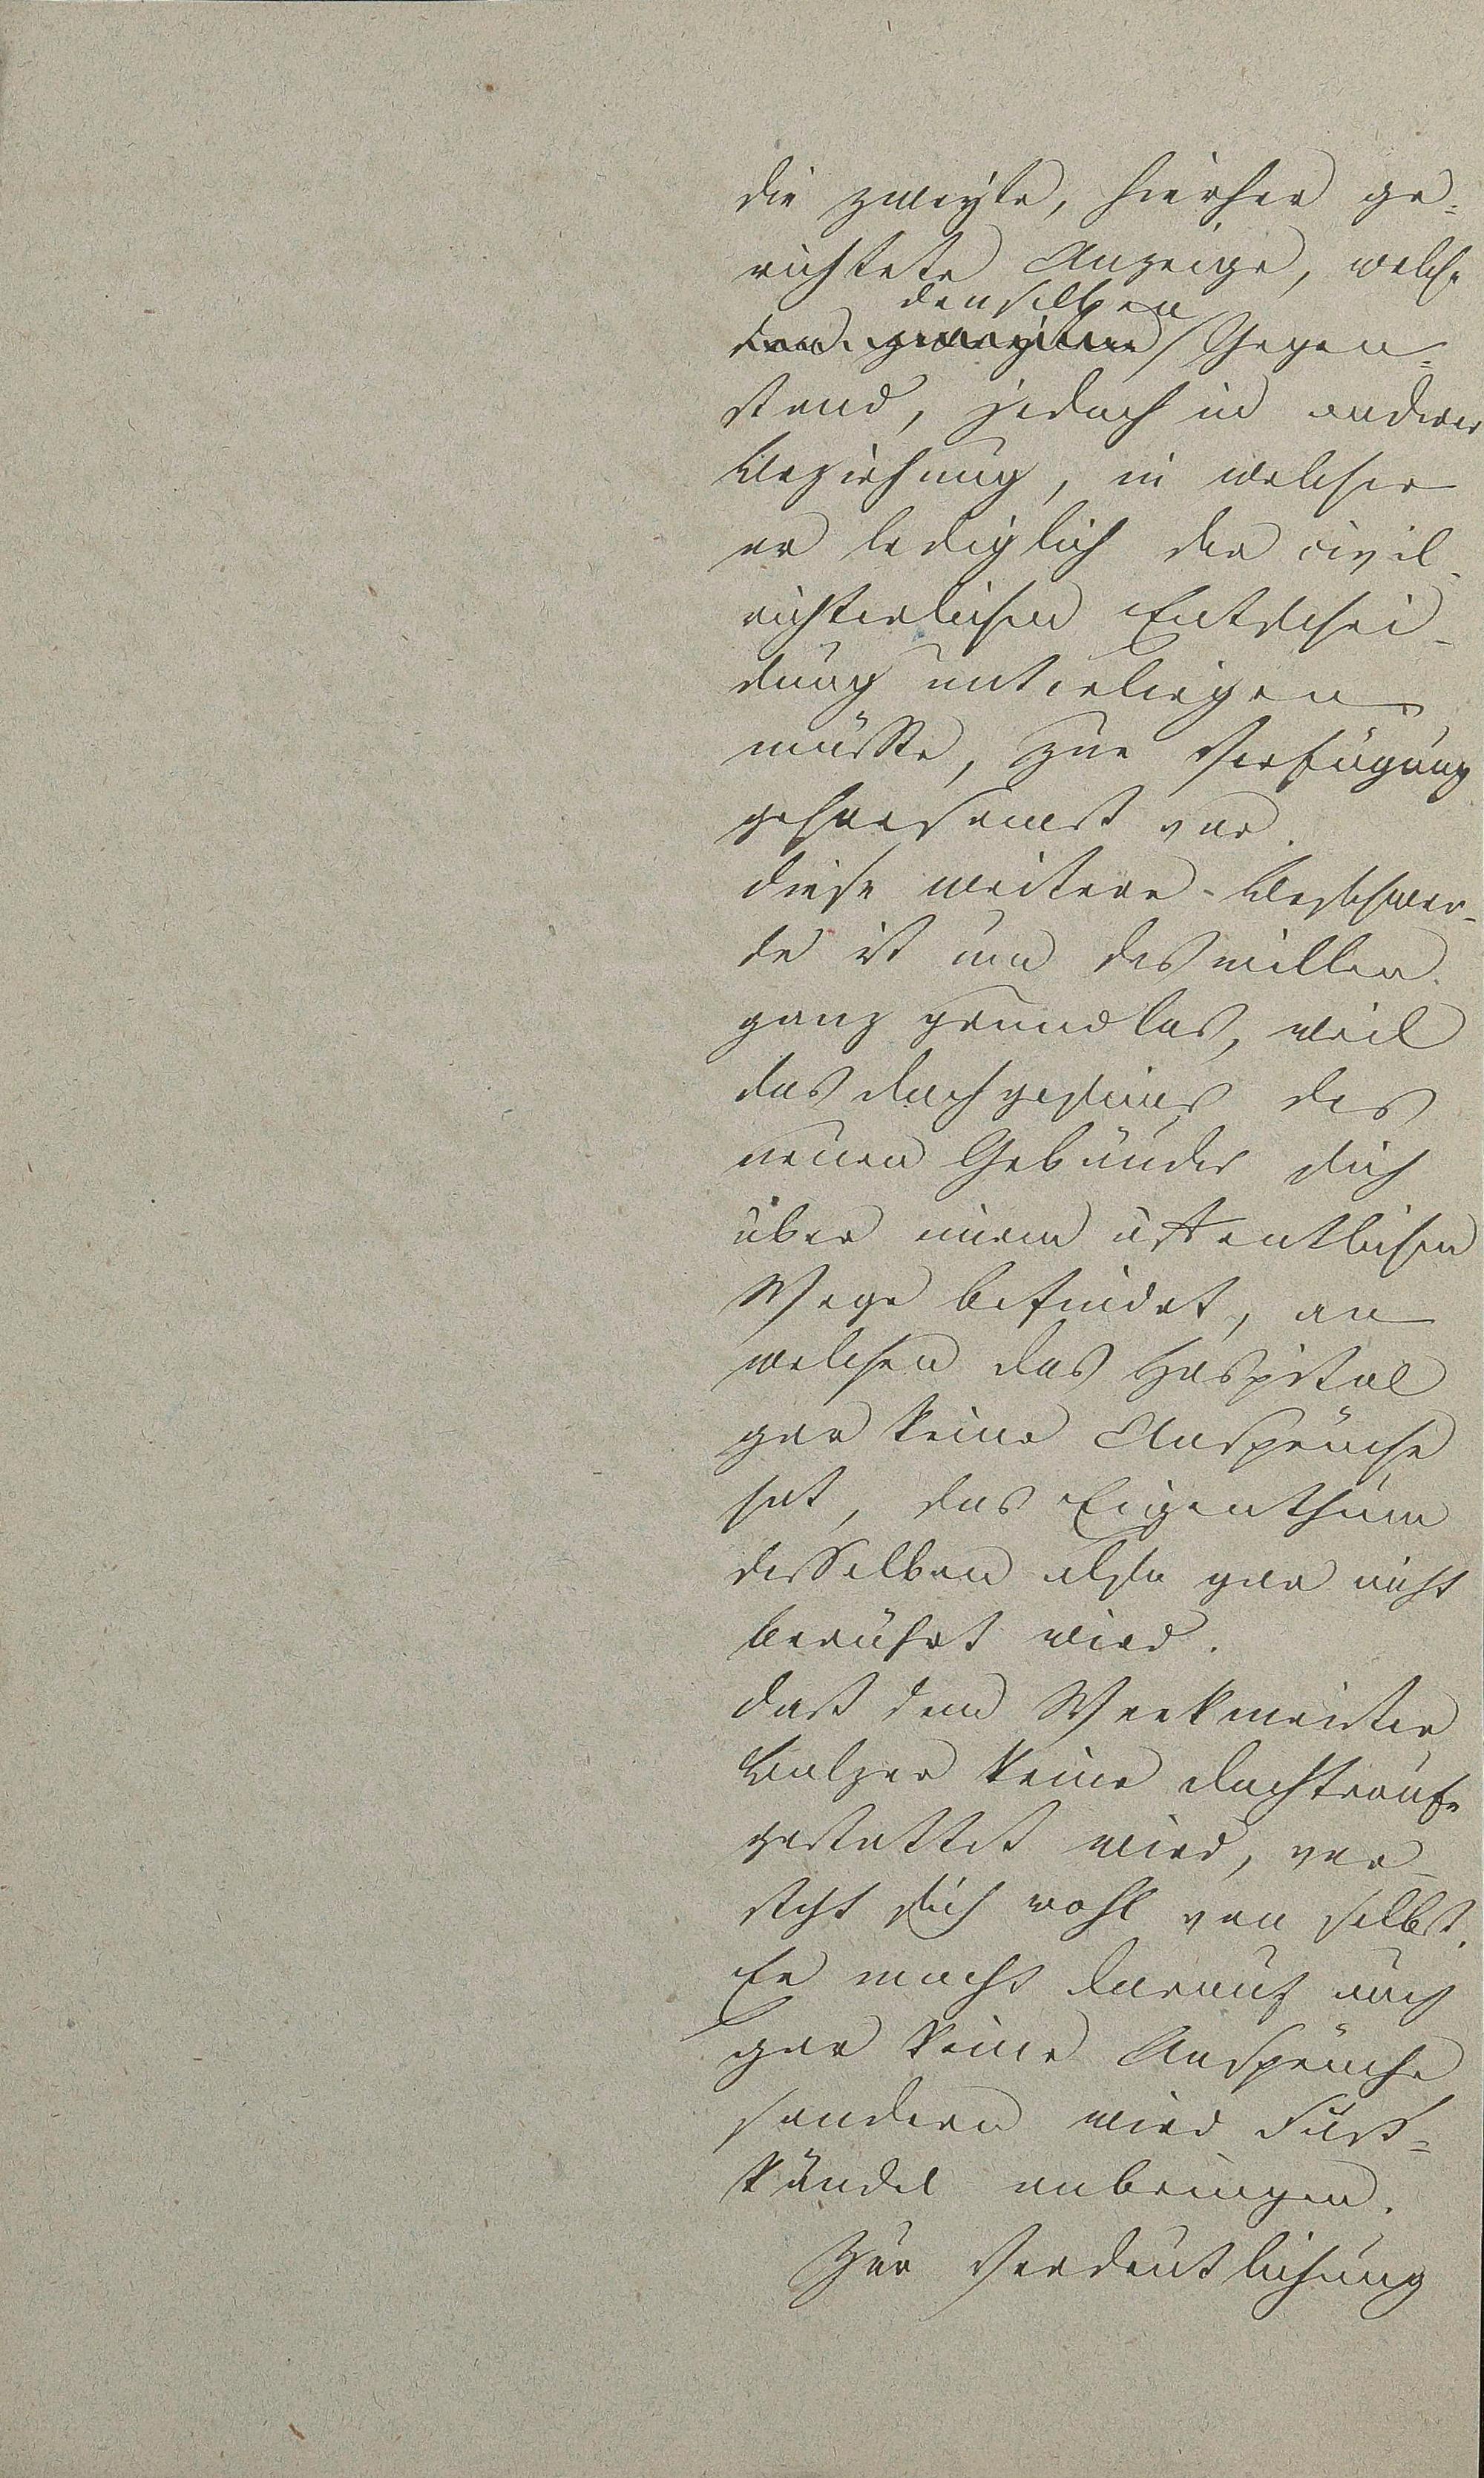 die zweyte, hierher ge-
richtete Anzeige, welche
denselben
den zweyten Gegen-
stand, jedoch in anderer
Beziehung, in welcher
er lediglich der civil-
richterlichen Entschei-
dung unterliegen
müsste, zur Verfügung
gehorsamst vor.
Diese weitere Beschwer-
de ist um deswillen
ganz grundlos, weil
das Dachgesims des
neuen Gebäudes sich
über einem öffentlichen
Wege befindet, an
welchen das Hospital
gar keine Ansprüche
hat, das Eigenthum
desselben also gar nicht
berührt wird.
Daß dem Werkmeister
Balzer keine Dachtraufe
gestattet wird, ver-
steht sich wohl von selbst.
Er macht darauf auch
gar keine Ansprüche
sondern wird
kändel anbringen.
Zur Verdeutlichung